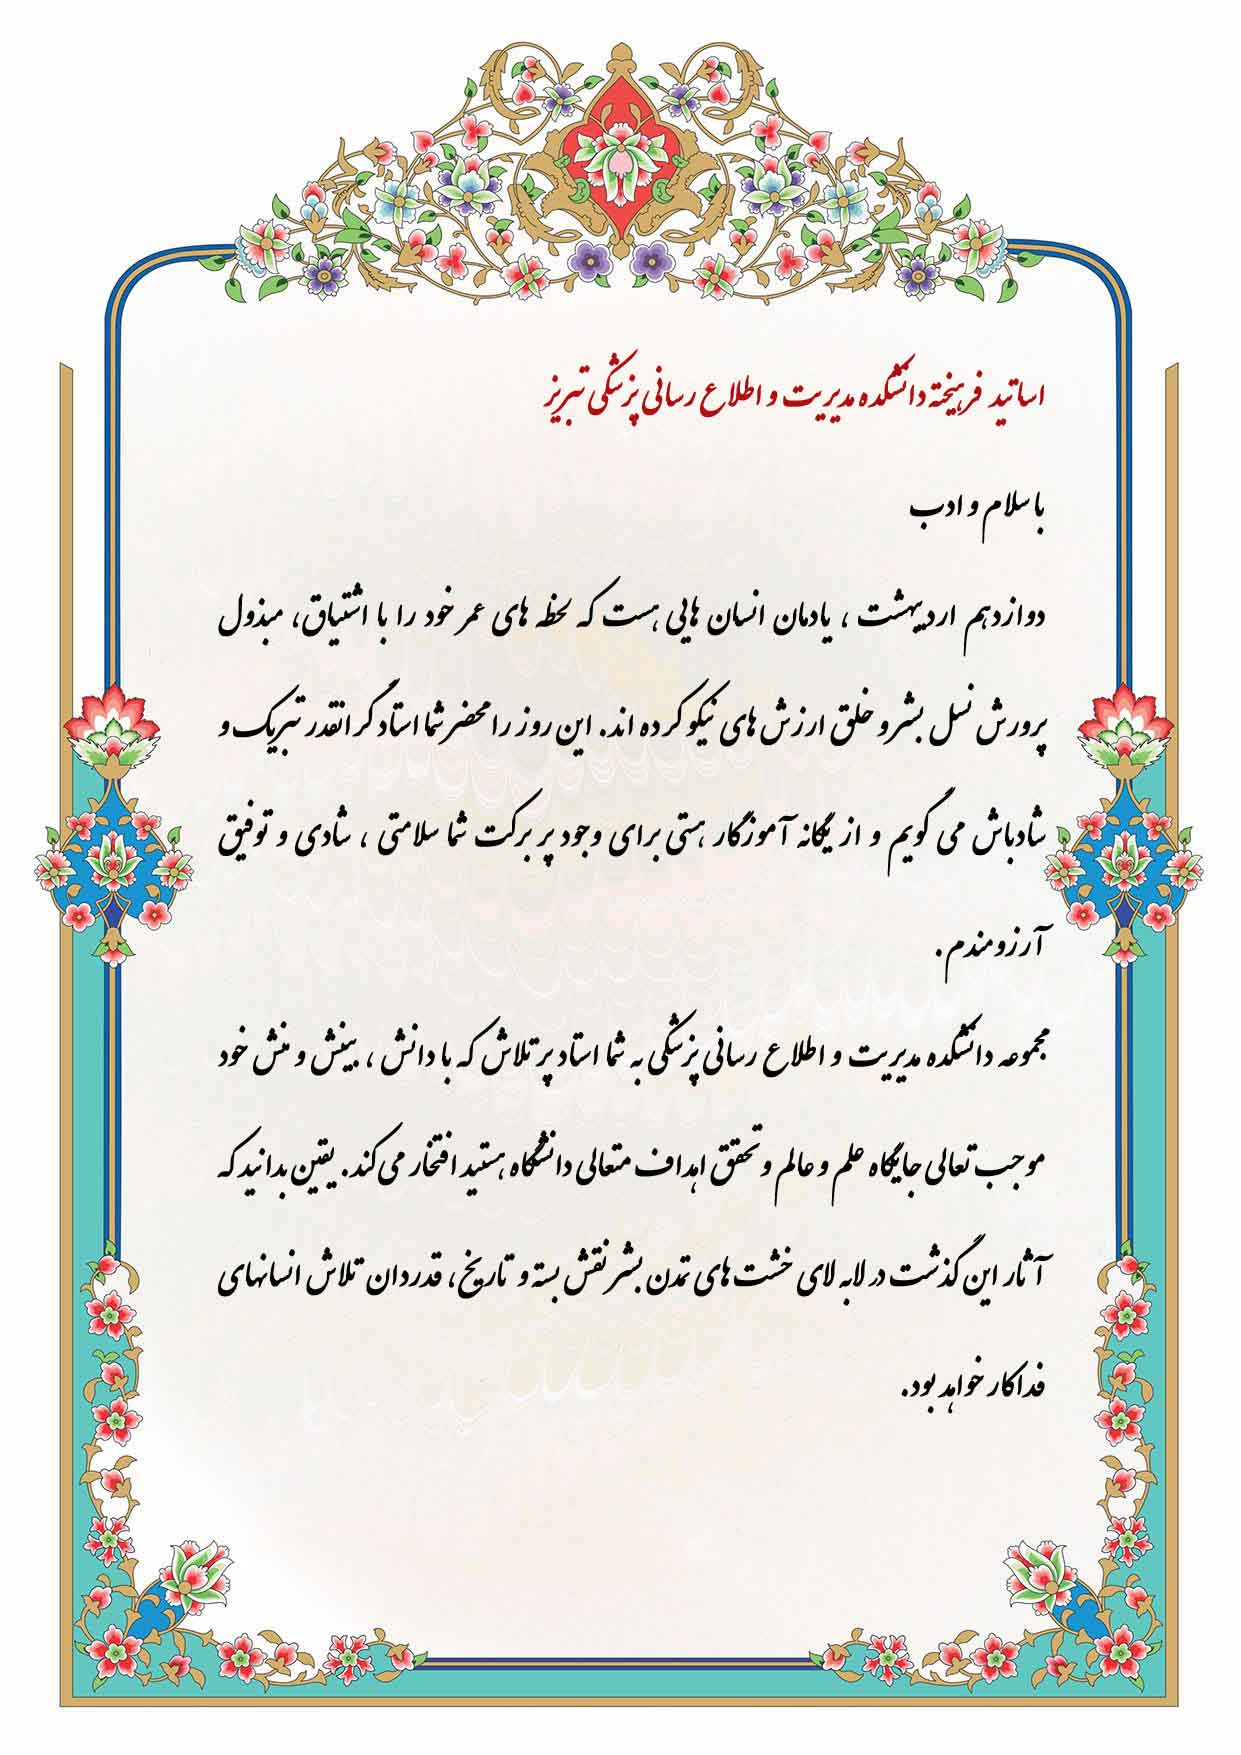 اساتید فرهیخته دانشکده مدیریت و اطلاع رسانی پزشکی تبریز
با سلام و ادب
دوازدهم اردیبهشت ، یادمان انسان هایی ست که لحظه های عمر خود را با اشتیاق، مبذول
پرورش نسل بشر و خلق ارزش های نیکو کرده اند. این روز را محضر شما استاد گرانقدر تبریک و
شادباش می گویم و از یگانه آموزگار هستی برای وجود پر برکت شما سلامتی ، شادی و توفیق
آرزومندم.
مجموعه دانشکده مدیریت و اطلاع رسانی پزشکی به شما استاد پر تلاش که با دانش ، بینش و منش خود
موجب تعالی جایگاه علم و عالم و تحقق اهداف متعالی دانشگاه هستید افتخار می کند. یقین بدانید که
آثار این گذشت در لابه لای خشت های تمدن بشر نقش بسته و تاریخ، قدردان تلاش انسانهای
فداکار خواهد بود.